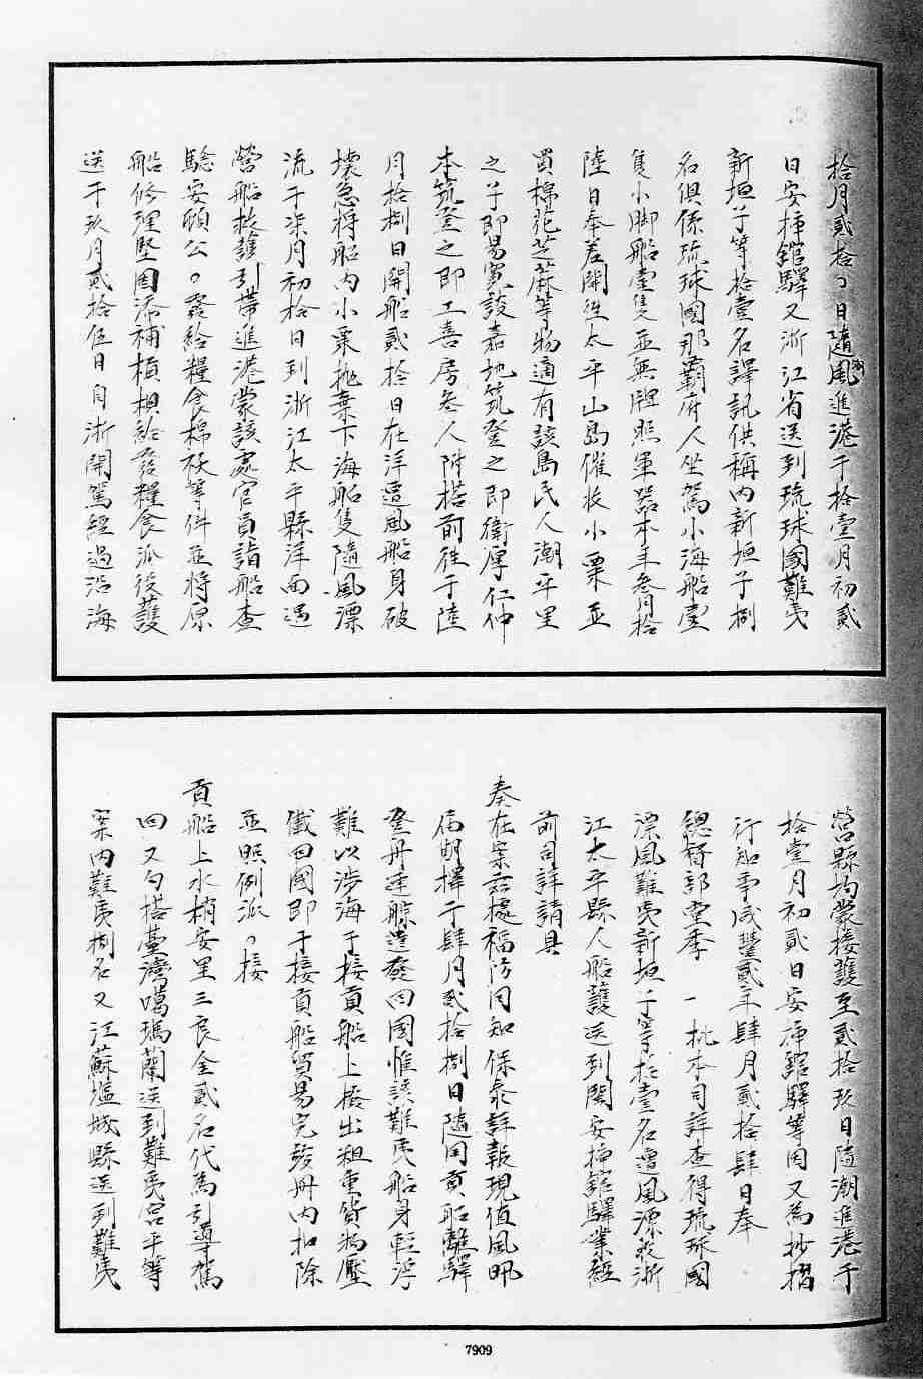 拾月貳拾〻日隨風進港于拾壹月初貳
日安揷館驛又浙江省送到琉球國難夷
新垣子等拾壹名譯訊供稱內新垣子捌
名俱係琉球國那霸府人坐駕小海船壹
隻小脚船壹隻並無牌照軍器本年叁月拾
陸日奉差開徃太平山島催收小粟並
買棉花芝蔴等物適有該島民人潮平里
之子即易賓該嘉地筑登之即衛厚仁仲
本筑登之即工喜房叁人附搭前徃于陸
月拾捌日開船貳拾日在洋遭風船身破
壞急將船內小粟抛棄下海船隻隨風漂
流于柒月初拾日到浙江太平縣洋面遇
營船救護引帶進港蒙該處官員詣船查
驗安頓公〻發給糧食棉袄等件並將原
船修理堅固添補桅椇給發糧食派役護
送于玖月貳拾伍日自浙開駕經過沿海
營縣均蒙接護至貳拾玖日隨潮進港于
拾壹月初貳日安揷館驛等因又為抄摺
行知事咸豐貳年肆月貳拾肆日奉
總督部堂季 一批本司詳查得琉球國
漂風難夷新垣子等拾壹名遭風漂收浙
江太平縣人船護送到閩安揷館驛業經
前司詳請具
奏在案茲據福防同知保泰詳報現值風汛
届期擇于肆月貳拾捌日隨同貢船離驛
登舟連䑸遣發回國惟該難夷船身輕浮
難以涉海于接貢船上撥出粗重貨物壓
儎回國即于接貢船貿易完竣冊內扣除
並照例派〻接
貢船上水梢安里三良仝貳名代為引導駕
回又勻搭臺灣噶瑪蘭送到難夷宮平等
案內難夷捌名又江蘇塩城縣送到難夷
7909